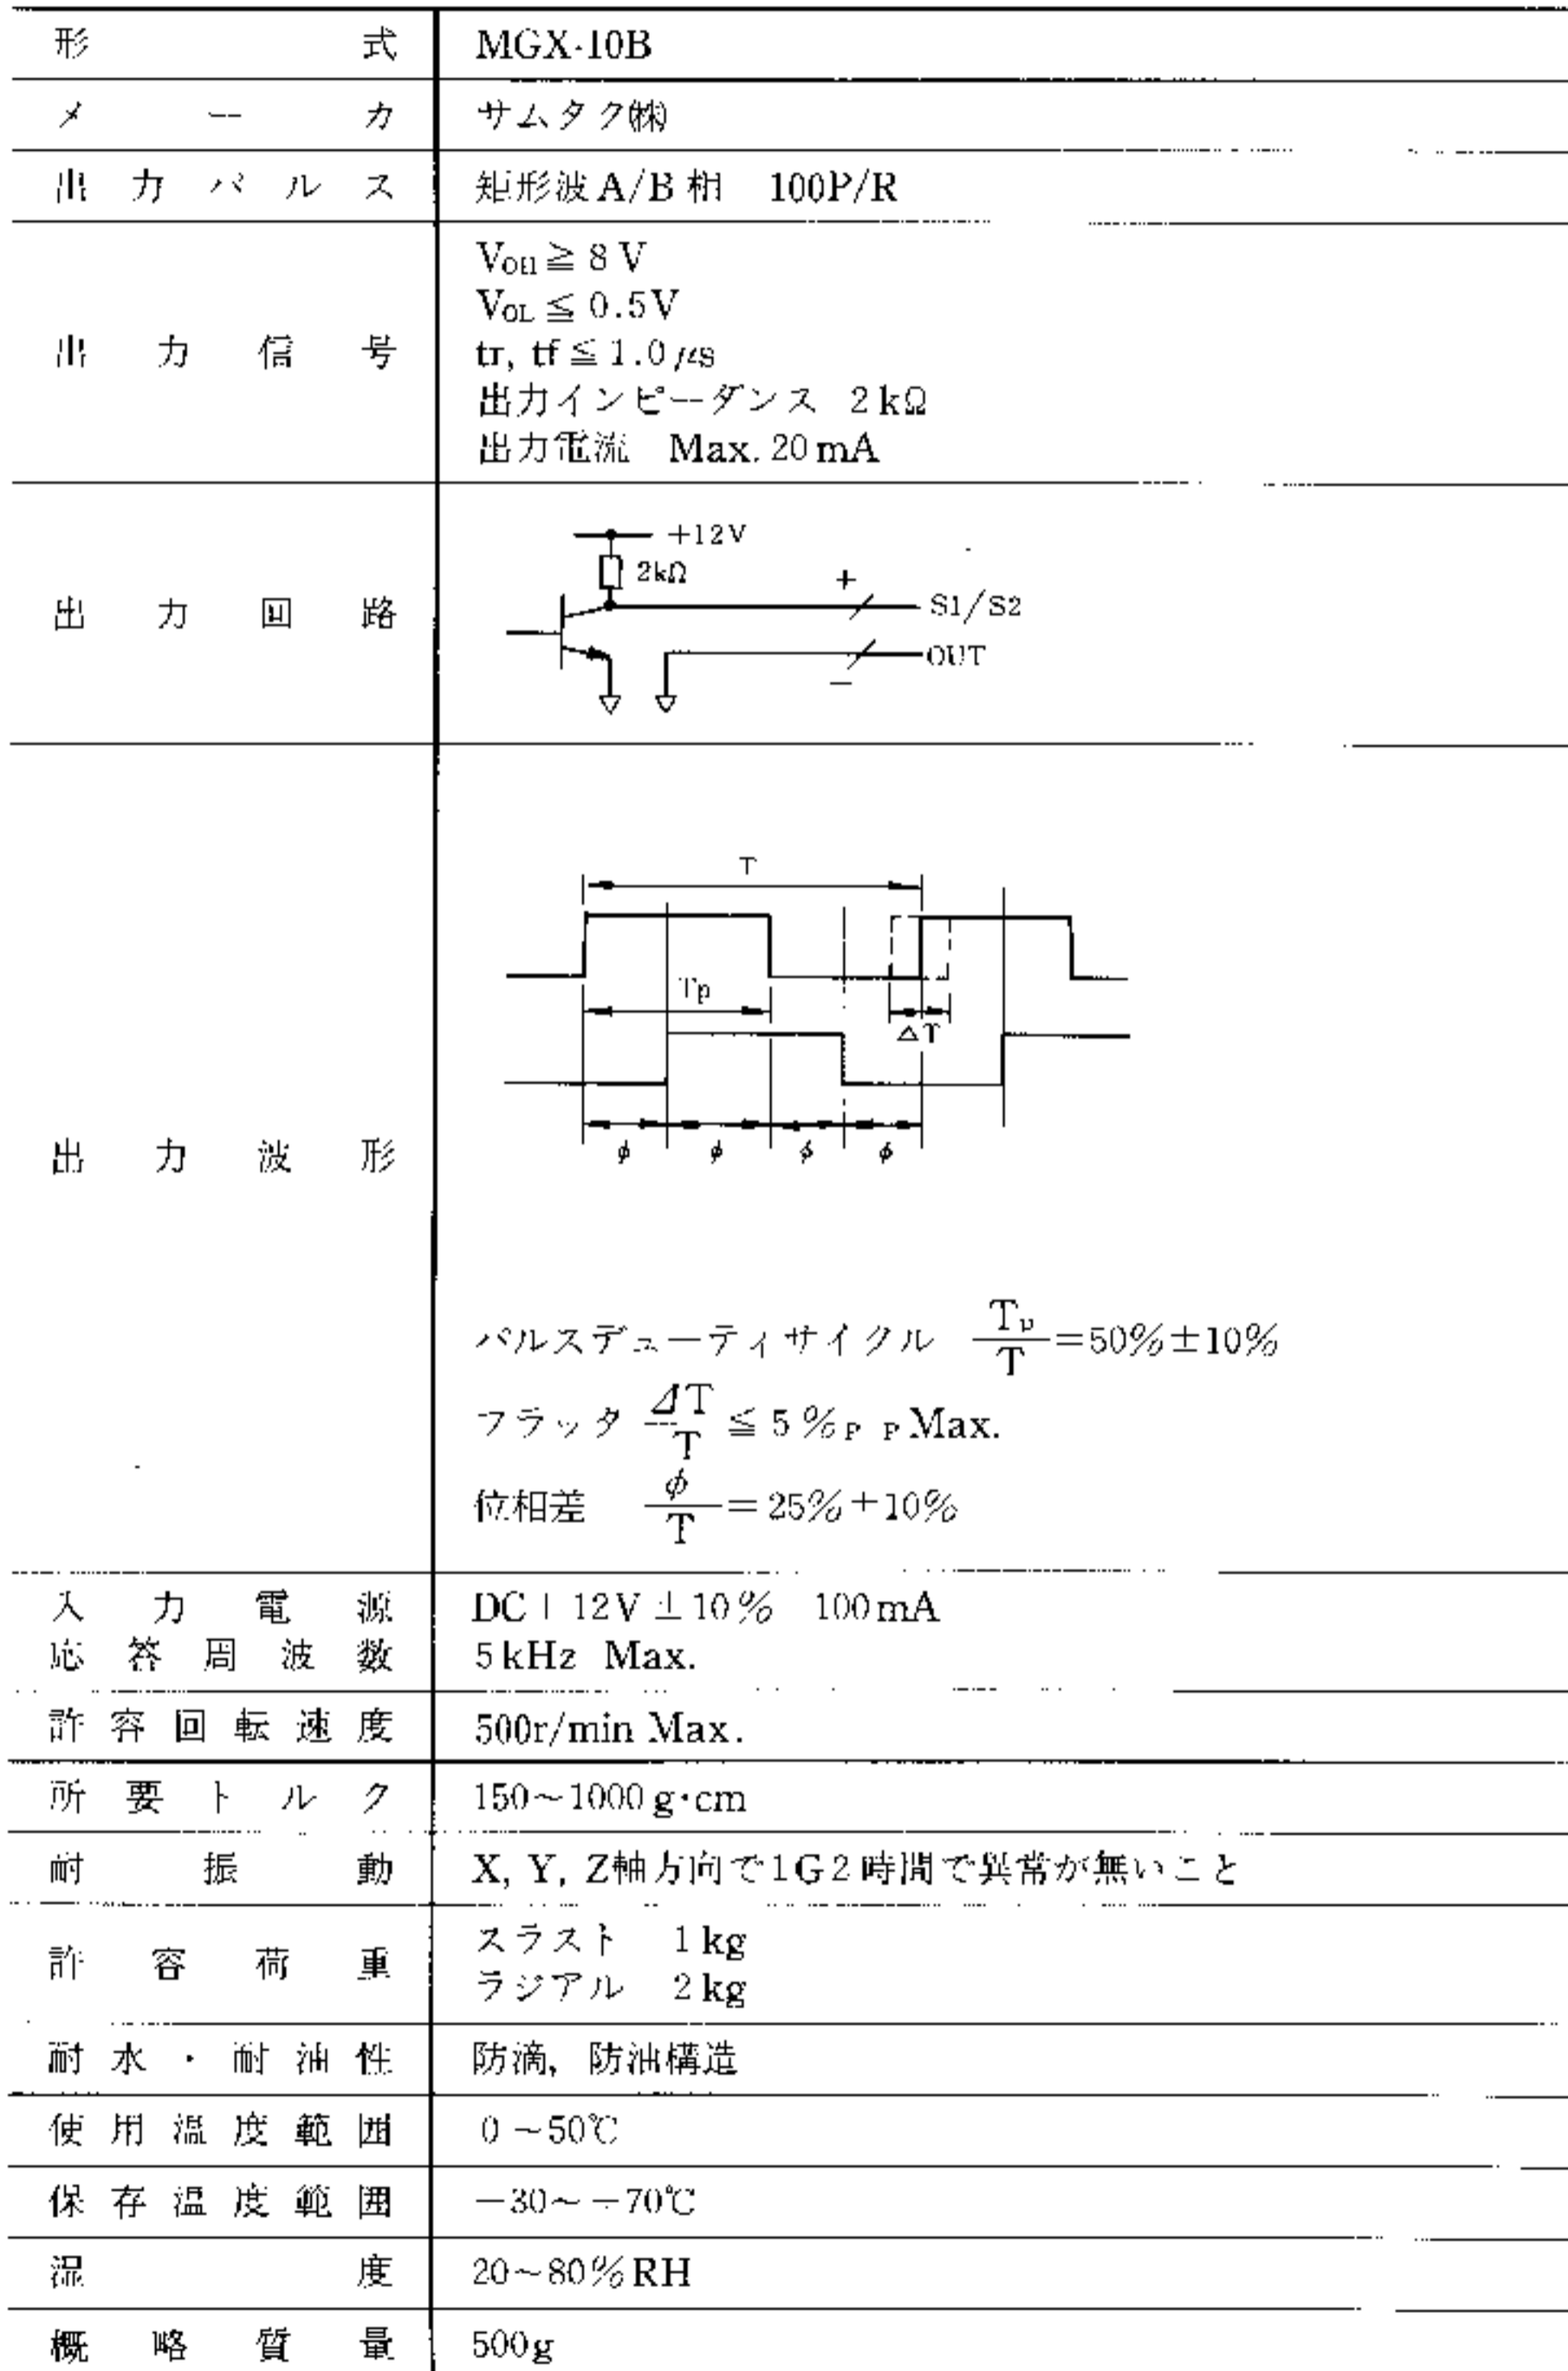 形式 MGX-10B
メーカ サムタク㈱
出力パルス 矩形波A/B相 100P/R
出力信号
V_OH ≧ 8 V
V_OL ≦ 0.5V
tr, tf ≦ 1.0 μs
出力インピーダンス 2 kΩ
出力電流 Max. 20 mA
出力回路
+12V
2kΩ
+
S1/S2
OUT
−
出力波形
T
Tp
△T
φ φ φ φ
パルスデューティサイクル Tp/T = 50%±10%
フラッタ ΔT/T ≦ 5 % P P Max.
位相差 φ/T = 25%+10%
入力電源 DC 12V ±10% 100mA
応答周波数 5 kHz Max.
許容回転速度 500r/min Max.
所要トルク 150~1000 g·cm
耐振動 X, Y, Z軸方向で1G2時間で異常が無いこと
許容荷重
スラスト 1 kg
ラジアル 2 kg
耐水・耐油性 防滴, 防油構造
使用温度範囲 0 ~50℃
保存温度範囲 −30~−70℃
湿度 20~80%RH
概略質量 500g